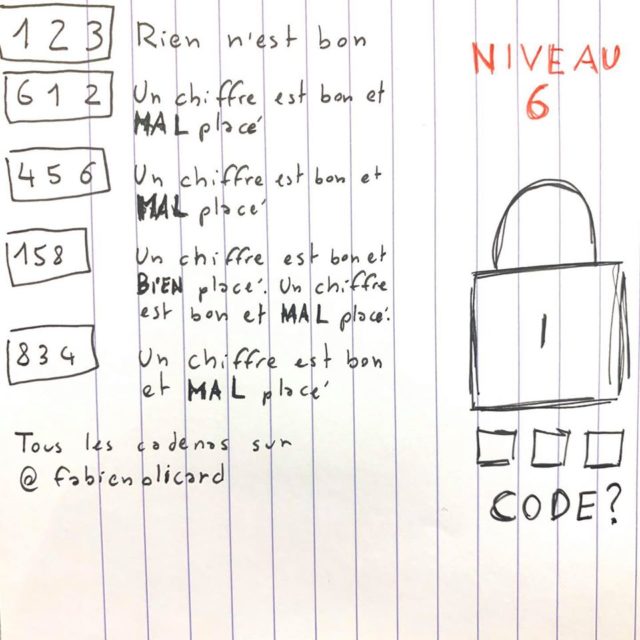 123 Rien n'est bon
NIVEAU
6
612 Un chiffre est bon et
MAL placé
456 Un chiffre est bon et
MAL placé
158 Un chiffre est bon et
BIEN placé. Un chiffre
est bon et MAL placé.
834 Un chiffre est bon
et MAL placé
Tous les cadenas sur
@fabienolicard
CODE?